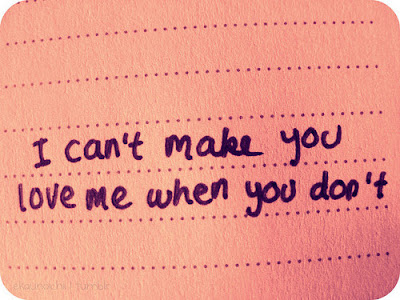 I can't make you
love me when you don't